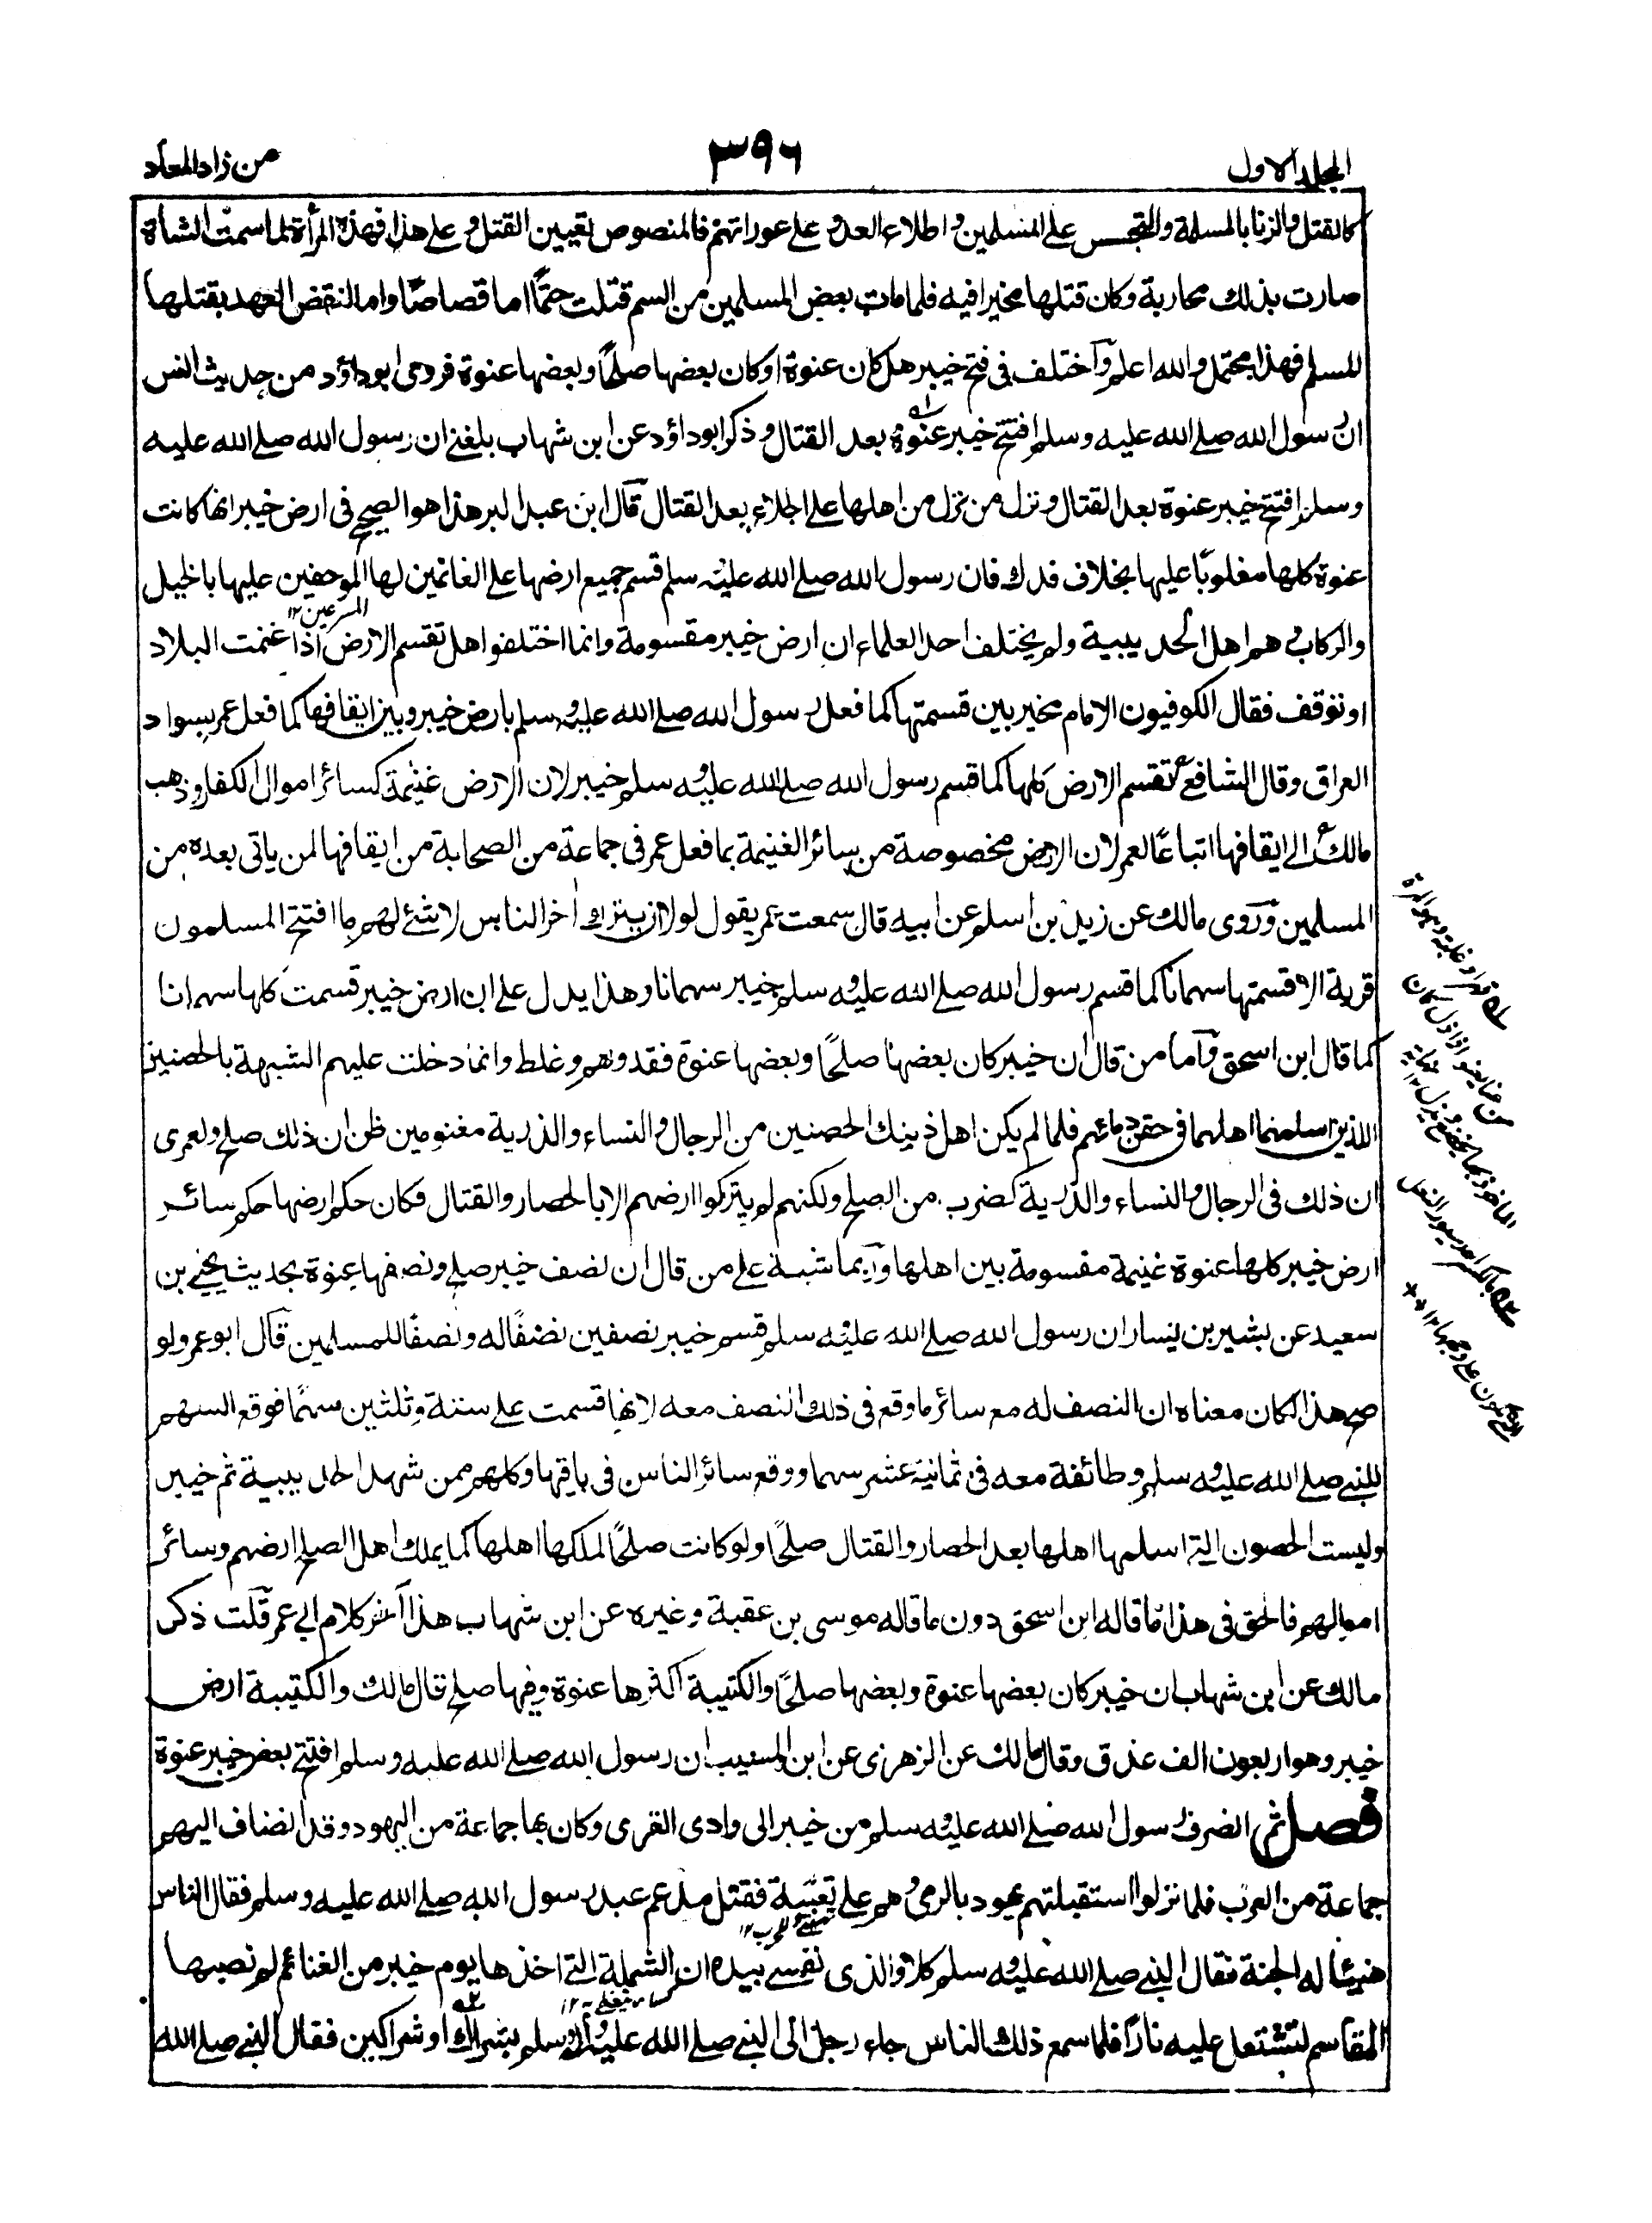 المجلد الاول
٣٩٦
من زاد المعاد
كالقتل والزنا بالمسلمة والتجسس على المسلمين واطلاع العدو على عوراتهم فالمنصوص تعيين القتل وعلى هذا فهذه المرأة لما سمت الشاة
صارت بذلك محاربة وكان قتلها مخيرا فيه فلما مات بعض المسلمين من السم قتلت حتمًا اما قصاصًا واما لنقض العهد بقتلها
المسلم فهذا محتمل والله اعلم وآختلف فى فتح خيبر هل كان عنوة او كان بعضها صلحًا وبعضها عنوة فروى ابو داؤد من حديث انس
ان رسول الله صلے الله عليه وسلم افتتح خيبر عنوة بعد القتال وذكر ابو داؤد عن ابن شهاب بلغنے ان رسول الله صلے الله عليه
وسلم افتتح خيبر عنوة بعد القتال ونزل من نزل من اهلها على الجلاء بعد القتال قآل ابن عبد البر هذا هو الصحيح فى ارض خيبر انها كانت
عنوة كلها مغلوبًا عليها بخلاف فدك فان رسول الله صلے الله عليه وسلم قسم جميع ارضها على الغانمين لها الموجفين عليها بالخيل
المسرعين ١٢
والركاب وهم اهل الحديبية ولم يختلف احد العلماء ان ارض خيبر مقسومة وانما اختلفوا هل تقسم الارض اذا غنمت البلاد
او توقف فقال الكوفيون الامام مخير بين قسمتها كما فعل رسول الله صلے الله عليه وسلم بارض خيبر وبين ايقافها كما فعل عمر بسواد
العراق وقال الشافعے تقسم الارض كلها كما قسم رسول الله صلے الله عليه وسلم خيبر لان الارض غنيمة كسائر اموال الكفار وذهب
مالك الى ايقافها اتباعًا لعمر لان الارض مخصوصة من سائر الغنيمة بما فعل عمر فى جماعة من الصحابة من ايقافها لمن ياتى بعده من
المسلمين وروى مالك عن زيد بن اسلم عن ابيه قال سمعت عمر يقول لولا ان يترك اخر الناس لا شئ لهم ما افتتح المسلمون
قرية الا قسمتها سهمانا كما قسم رسول الله صلے الله عليه وسلم خيبر سهمانا وهذا يدل على ان ارض خيبر قسمت كلها سهمانا
كما قال ابن اسحق وآما من قال ان خيبر كان بعضها صلحًا وبعضها عنوة فقد وهم وغلط وانما دخلت عليهم الشبهة بالحصنين
اللذين اسلمهما اهلهما فى حقن دمائهم فلما لم يكن اهل ذينك الحصنين من الرجال والنساء والذرية مغنومين ظن ان ذلك صلح ولعمرى
ان ذلك فى الرجال والنساء والذرية كضرب من الصلح ولكنهم لم يتركوا ارضهم الا بالحصار والقتال فكان حكم ارضها حكم سائر
ارض خيبر كلها عنوة غنيمة مقسومة بين اهلها وربما شبه على من قال ان نصف خيبر صلح ونصفها عنوة بحديث يحيے بن
سعيد عن بشير بن يسار ان رسول الله صلے الله عليه وسلم قسم خيبر نصفين نصفًا له ونصفًا للمسلمين قآل ابو عمر ولو
صح هذا لكان معناه ان النصف له مع سائر ما وقع فى ذلك النصف معه لانها قسمت على ستة وثلثين سهمًا فوقع السهم
للنبے صلے الله عليه وسلم وطائفة معه فى ثمانية عشر سهما ووقع سائر الناس فى باقيها وكلهم ممن شهد الحديبية ثم خيبر
وليست الحصون التے اسلمها اهلها بعد الحصار والقتال صلحًا ولو كانت صلحًا لملكها اهلها كما يملك اهل الصلح ارضهم وسائر
اموالهم فالحق فى هذا ما قاله ابن اسحق دون ما قاله موسى بن عقبة وغيره عن ابن شهاب هذا آخر كلام ابى عمر قلت ذكر
مالك عن ابن شهاب ان خيبر كان بعضها عنوة وبعضها صلحًا والكتيبة اكثرها عنوة وفيها صلح قال مالك والكتيبة ارض
خيبر وهو اربعون الف عذق وقال مالك عن الزهرى عن ابن المسيب ان رسول الله صلے الله عليه وسلم افتتح بعض خيبر عنوة
فصل ثم انصرف رسول الله صلے الله عليه وسلم من خيبر الى وادى القرى وكان بها جماعة من اليهود وقد انضاف اليهم
جماعة من العرب فلما نزلوا استقبلتهم يهود بالرمى وهم على تعبية فقتل مدعم عبد رسول الله صلے الله عليه وسلم فقال الناس
هنيئًا له الجنة فقال النبے صلے الله عليه وسلم كلا والذى نفسے بيده ان الشملة التے اخذها يوم خيبر من الغنائم لم تصبها
المقاسم لتشتعل عليه نارًا فلما سمع ذلك الناس جاء رجل الى النبے صلے الله عليه وسلم بشراك او شراكين فقال النبے صلے الله